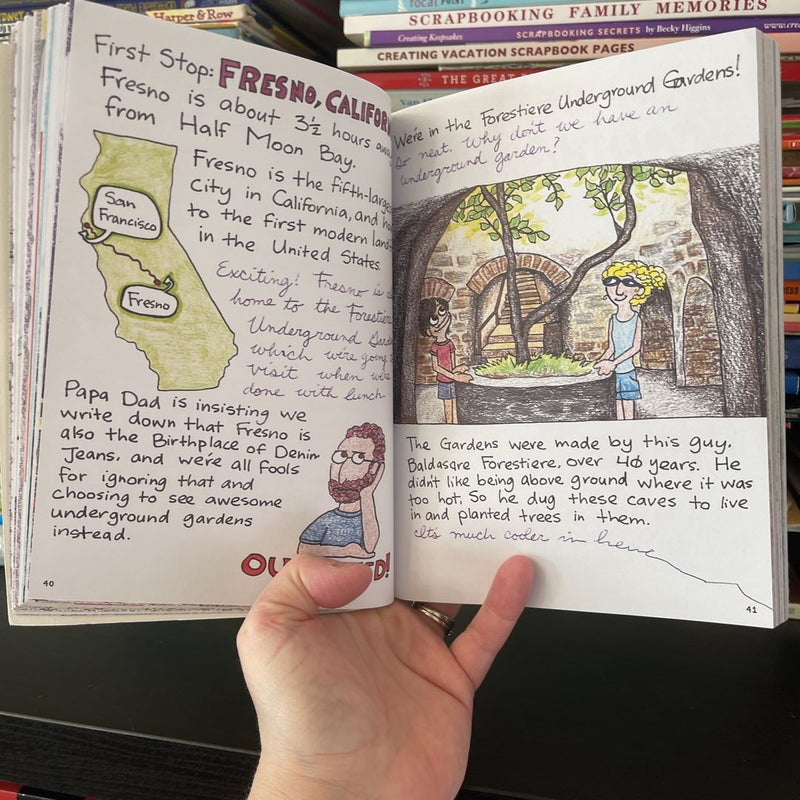 Harper & Row
focal POINT
SCRAPBOOKING FAMILY MEMORIES
Creating Keepsakes SCRAPBOOKING SECRETS by Becky Higgins
CREATING VACATION SCRAPBOOK PAGES
THE GREAT
First Stop: FRESNO, CALIFOR
Fresno is about 3½ hours awa
from Half Moon Bay.
Fresno is the fifth-large
City in California, and ho
to the first modern land
in the United States.
San
Francisco
Fresno
Exciting! Fresno is
home to the Forestier
Underground Gard
which we're going
visit when we'r
done with lunch
Papa Dad is insisting we
write down that Fresno is
also the Birthplace of Denim
Jeans, and we're all fools
for ignoring that and
choosing to see awesome
underground gardens
instead.
OU ED!
40
We're in the Forestiere Underground Gardens!
So neat. Why don't we have an
underground garden?
The Gardens were made by this guy,
Baldasare Forestiere, over 40 years. He
didn't like being above ground where it was
too hot, So he dug these caves to live
in and planted trees in them.
It's much cooler in here
41